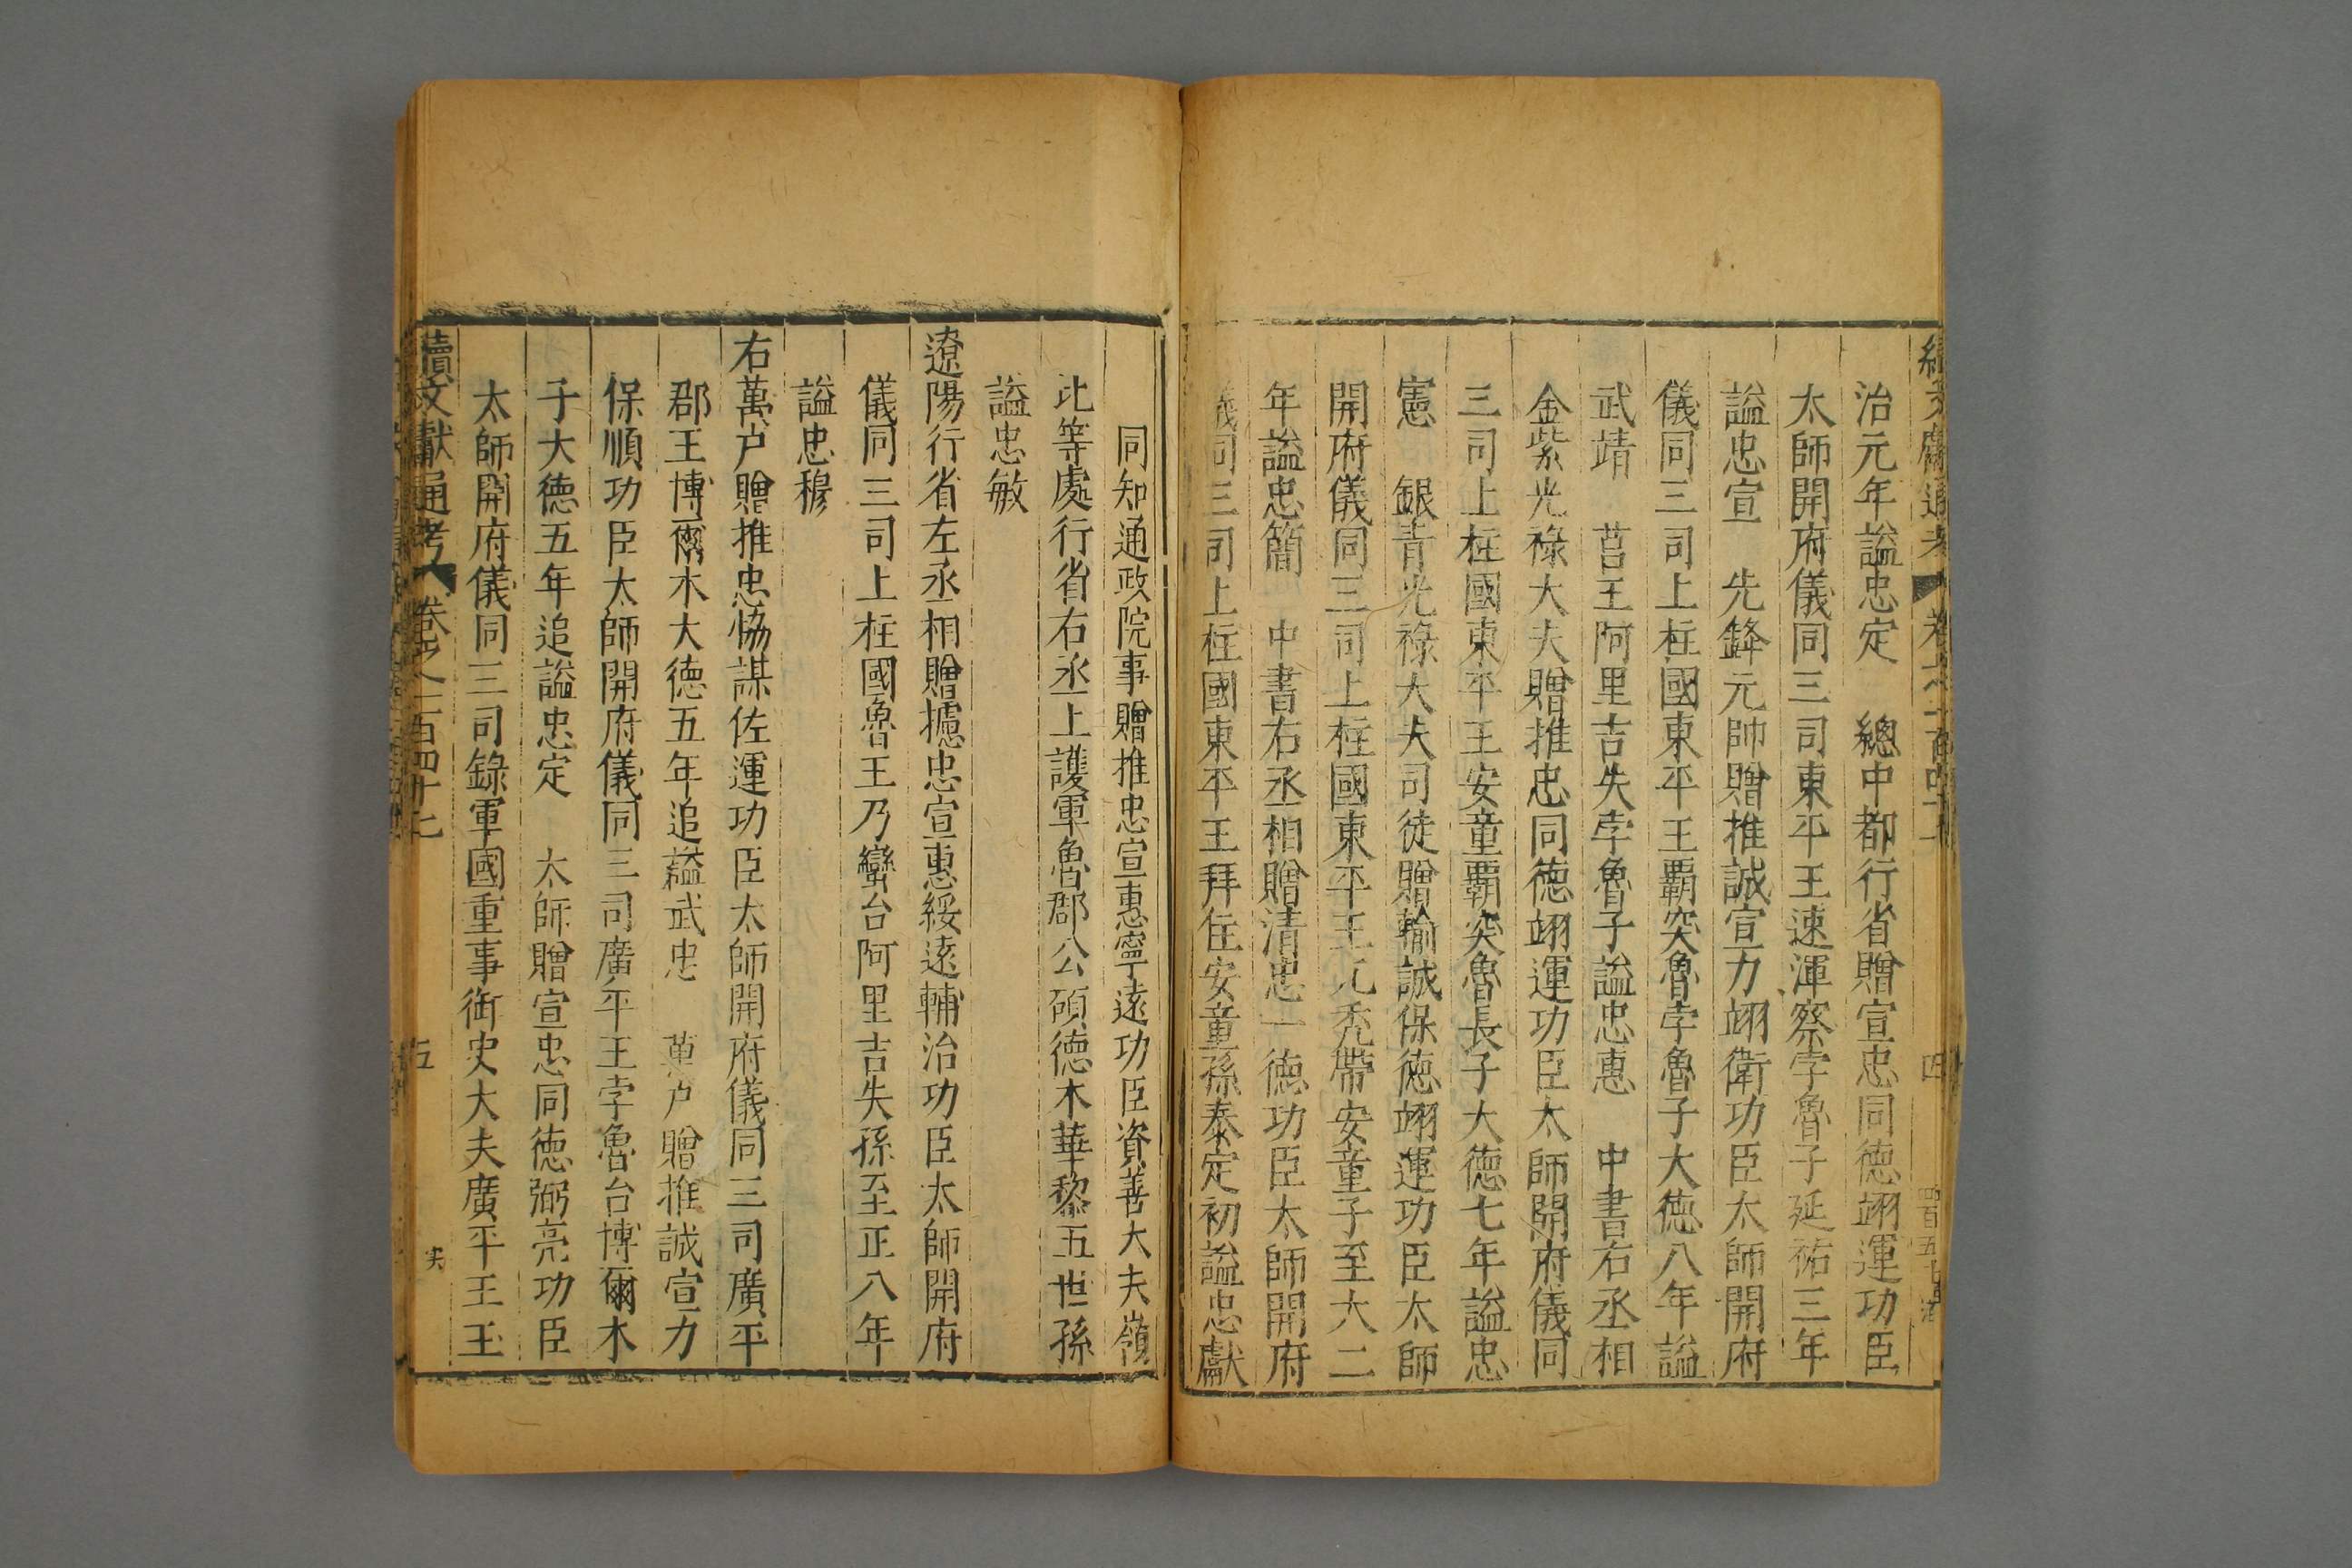 治元年謚忠定　總中都行省贈宣忠同德翊運功臣
太師開府儀同三司東平王速渾察孛魯子延祐三年
謚忠宣　先鋒元帥贈推誠宣力翊衛功臣太師開府
儀同三司上柱國東平王霸突魯孛魯子大德八年謚
武靖　莒王阿里吉失孛魯子謚忠惠　中書右丞相
金紫光祿大夫贈推忠同德翊運功臣太師開府儀同
三司上柱國東平王安童霸突魯長子大德七年謚忠
憲　銀青光祿大夫大司徒贈輸誠保德翊運功臣太師
開府儀同三司上柱國東平王兀禿帶安童子至大二
年謚忠簡　中書右丞相贈清忠一德功臣太師開府
儀同三司上柱國東平王拜住安童孫泰定初謚忠獻
同知通政院事贈推忠宣惠寧遠功臣資善大夫嶺
北等處行省右丞上護軍魯郡公碩德木華黎五世孫
謚忠敏
遼陽行省左丞相贈攄忠宣惠綏遠輔治功臣太師開府
儀同三司上柱國魯王乃蠻台阿里吉失孫至正八年
謚忠穆
右萬户贈推忠恊謀佐運功臣太師開府儀同三司廣平
郡王博爾木大德五年追謚武忠　萬户贈推誠宣力
保順功臣太師開府儀同三司廣平王孛魯台博爾木
子大德五年追謚忠定　太師贈宣忠同德弼亮功臣
太師開府儀同三司錄軍國重事御史大夫廣平王玉
續文獻通考　卷之一百四十七　五